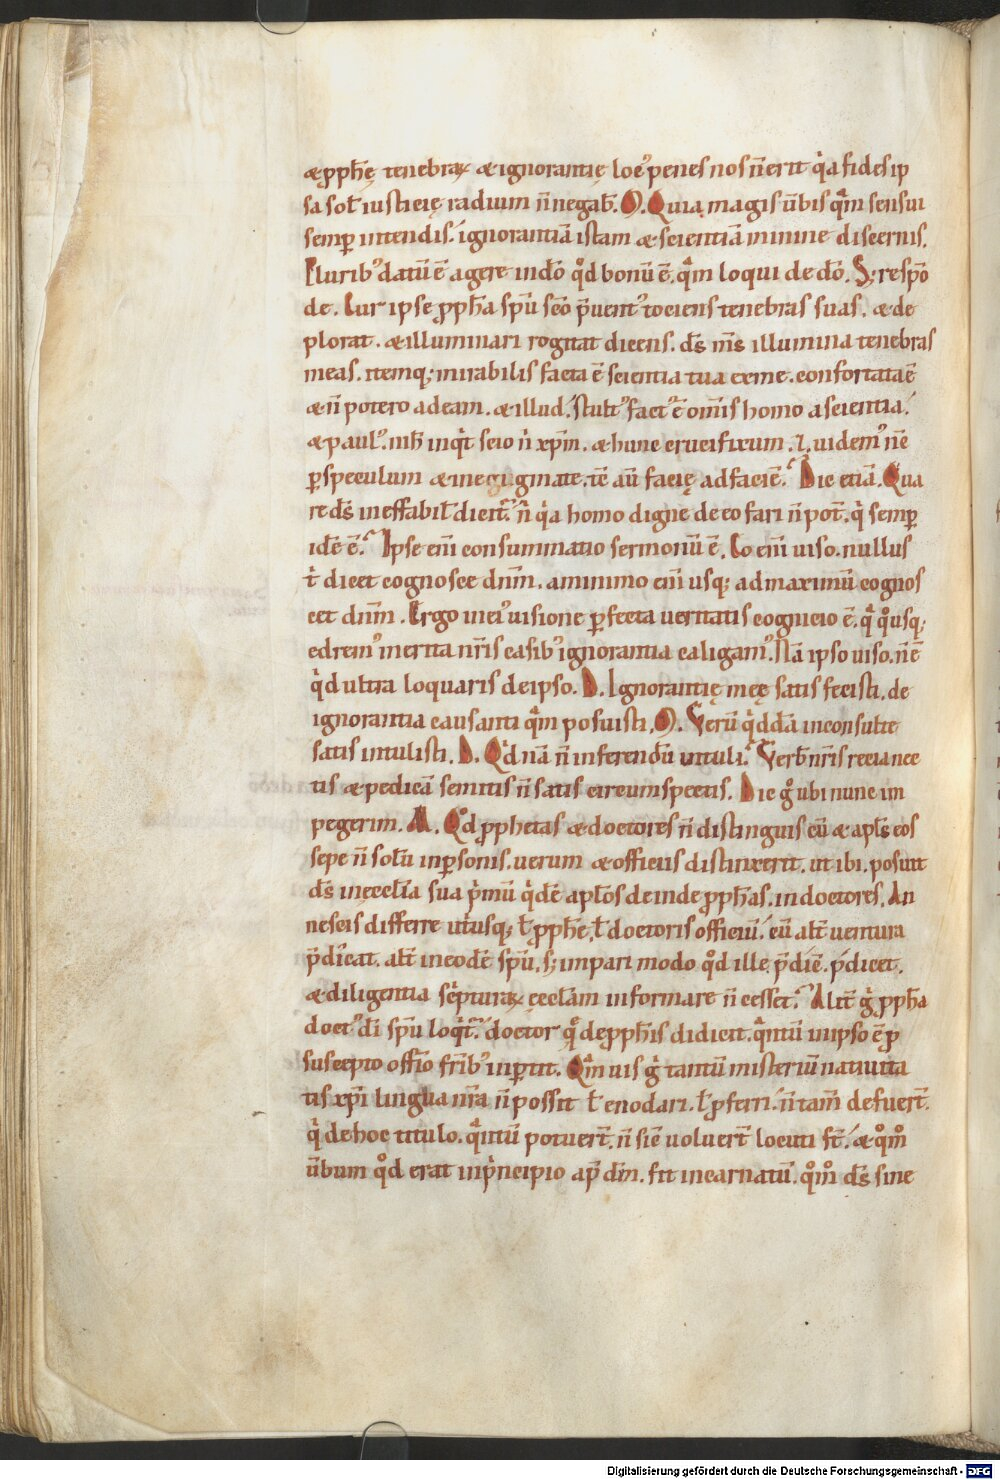 & ꝓph̄ę tenebraꝝ & ignorantię locꝰ penes nos n̄ erit q̇a fides ip
sa sol̄ iusticię radium n̄ negab̄. M. Quia magis u̅bis qͣm sensui
semp̲ intendis. ignorantiā istam & scientiā minime discernis.
Pluribꝰ datū ē agere in dō qͦd bonū ē. qͣm loqui de dō. S; respō
de. Cur ipse ꝓph̄a spū sc̄o p̄uentꝰ tociens tenebras suas. & de
plorat. & illuminari rogitat dicens. ds̄ ms̄ illumina tenebras
meas. itemq; mirabilis facta ē scientia tua ex me. confortata ē
& n̄ potero ad eam. & illud. stultꝰ factꝰ ē om̄is homo a scientia.
& paulꝰ. nih̄ inqͥt scio n̄ xp̄m. & hunc crucifixum. ł. uidemꝰ nc̄
p̲ speculum & in enigmate. tc̄ au̅ facię ad faciē. Dic etiā. Qua
re ds̄ ineffabil̄ dicit̄. n̄ q̇a homo digne de eo fari n̄ pot̄. qͥ semp̲
idē ē. Ipse eni̅ consummatio sermonū ē. Eo eni̅ uiso. nullus
t̄ dicet cognosce dn̄m. a minimo eni̅ usq; ad maximū cognos
cet dn̄m. Ergo in eiꝰ uisione p̲fecta ueritatis cognicio ē. qͣ qͦusq;
edremꝰ in errita nr̄is casibꝰ ignorantia caligamꝰ. Nā ipso uiso. n̄ ē
qͥd ultra loquaris de ipso. D. Ignorantię meę satis fecisti. de
ignorantia causanti qͣm posuisti. M. Verū qͥddā inconsulte
satis intulisti. D. Qͥd nā n̄ inferendū intuli. Verb̄ nr̄is recia nec
tis & pedicā semitis n̄ satis circumspectis. Dic gͦ ubi nunc im
pegerim. M. Qͦd ꝓphetas & doctores n̄ distinguis cū & apl̄s eos
sepe n̄ solū in p̲sonis. uerum & officiis distinxerit. ut ibi. posuit
ds̄ in ęccl̄ia sua p̄mū qͥdē apl̄os deinde ꝓph̄as. in doctores. An
nescis differre utrūsq; ł ꝓph̄e. ł doctoris officiū. cū alt̄ uentura
p̄dicat. alt̄ in eodē spū. s; impari modo qͦd ille p̄dic̄. p̄dicet.
& diligentia sc̄pturaꝝ ęccl̄am informare n̄ cesset. Alit̄ gͥ ꝓph̄a
doctꝰ dī spū loqͥt̄. doctor qͦ de ꝓph̄is didicit. qͣntū in ipso ē ꝓ
suscepto offic̄o fr̄ibꝰ inp̲tit. Qͣm uis gͥ tantū misteriū natiuita
tis xp̄i lingua nr̄a n̄ possit ł enodari. ł ꝓferri. n̄ tam̄ defuer̄t.
qͥ de hoc titulo. qͣntū potuer̄t. n̄ sic̄ uoluer̄t locuti st̄. & qͦm̊
u̅bum qͦd erat in p̄ncipio ap̄ dm̄. fit incarnatū. qͦm̊ ds̄ sine
Digitalisierung gefördert durch die Deutsche Forschungsgemeinschaft - DFG